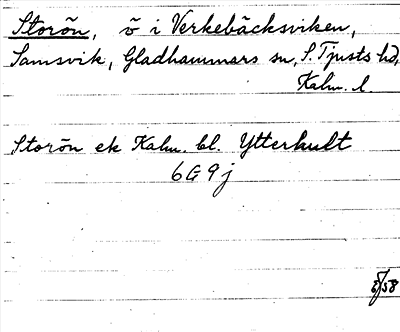 Storön, ö i Verkebäcksviken,
Samsvik, Gladhammars sn, S. Tjusts hd,
Kalm. l.
Storön ek Kalm. bl. Ytterhult
6G 9j